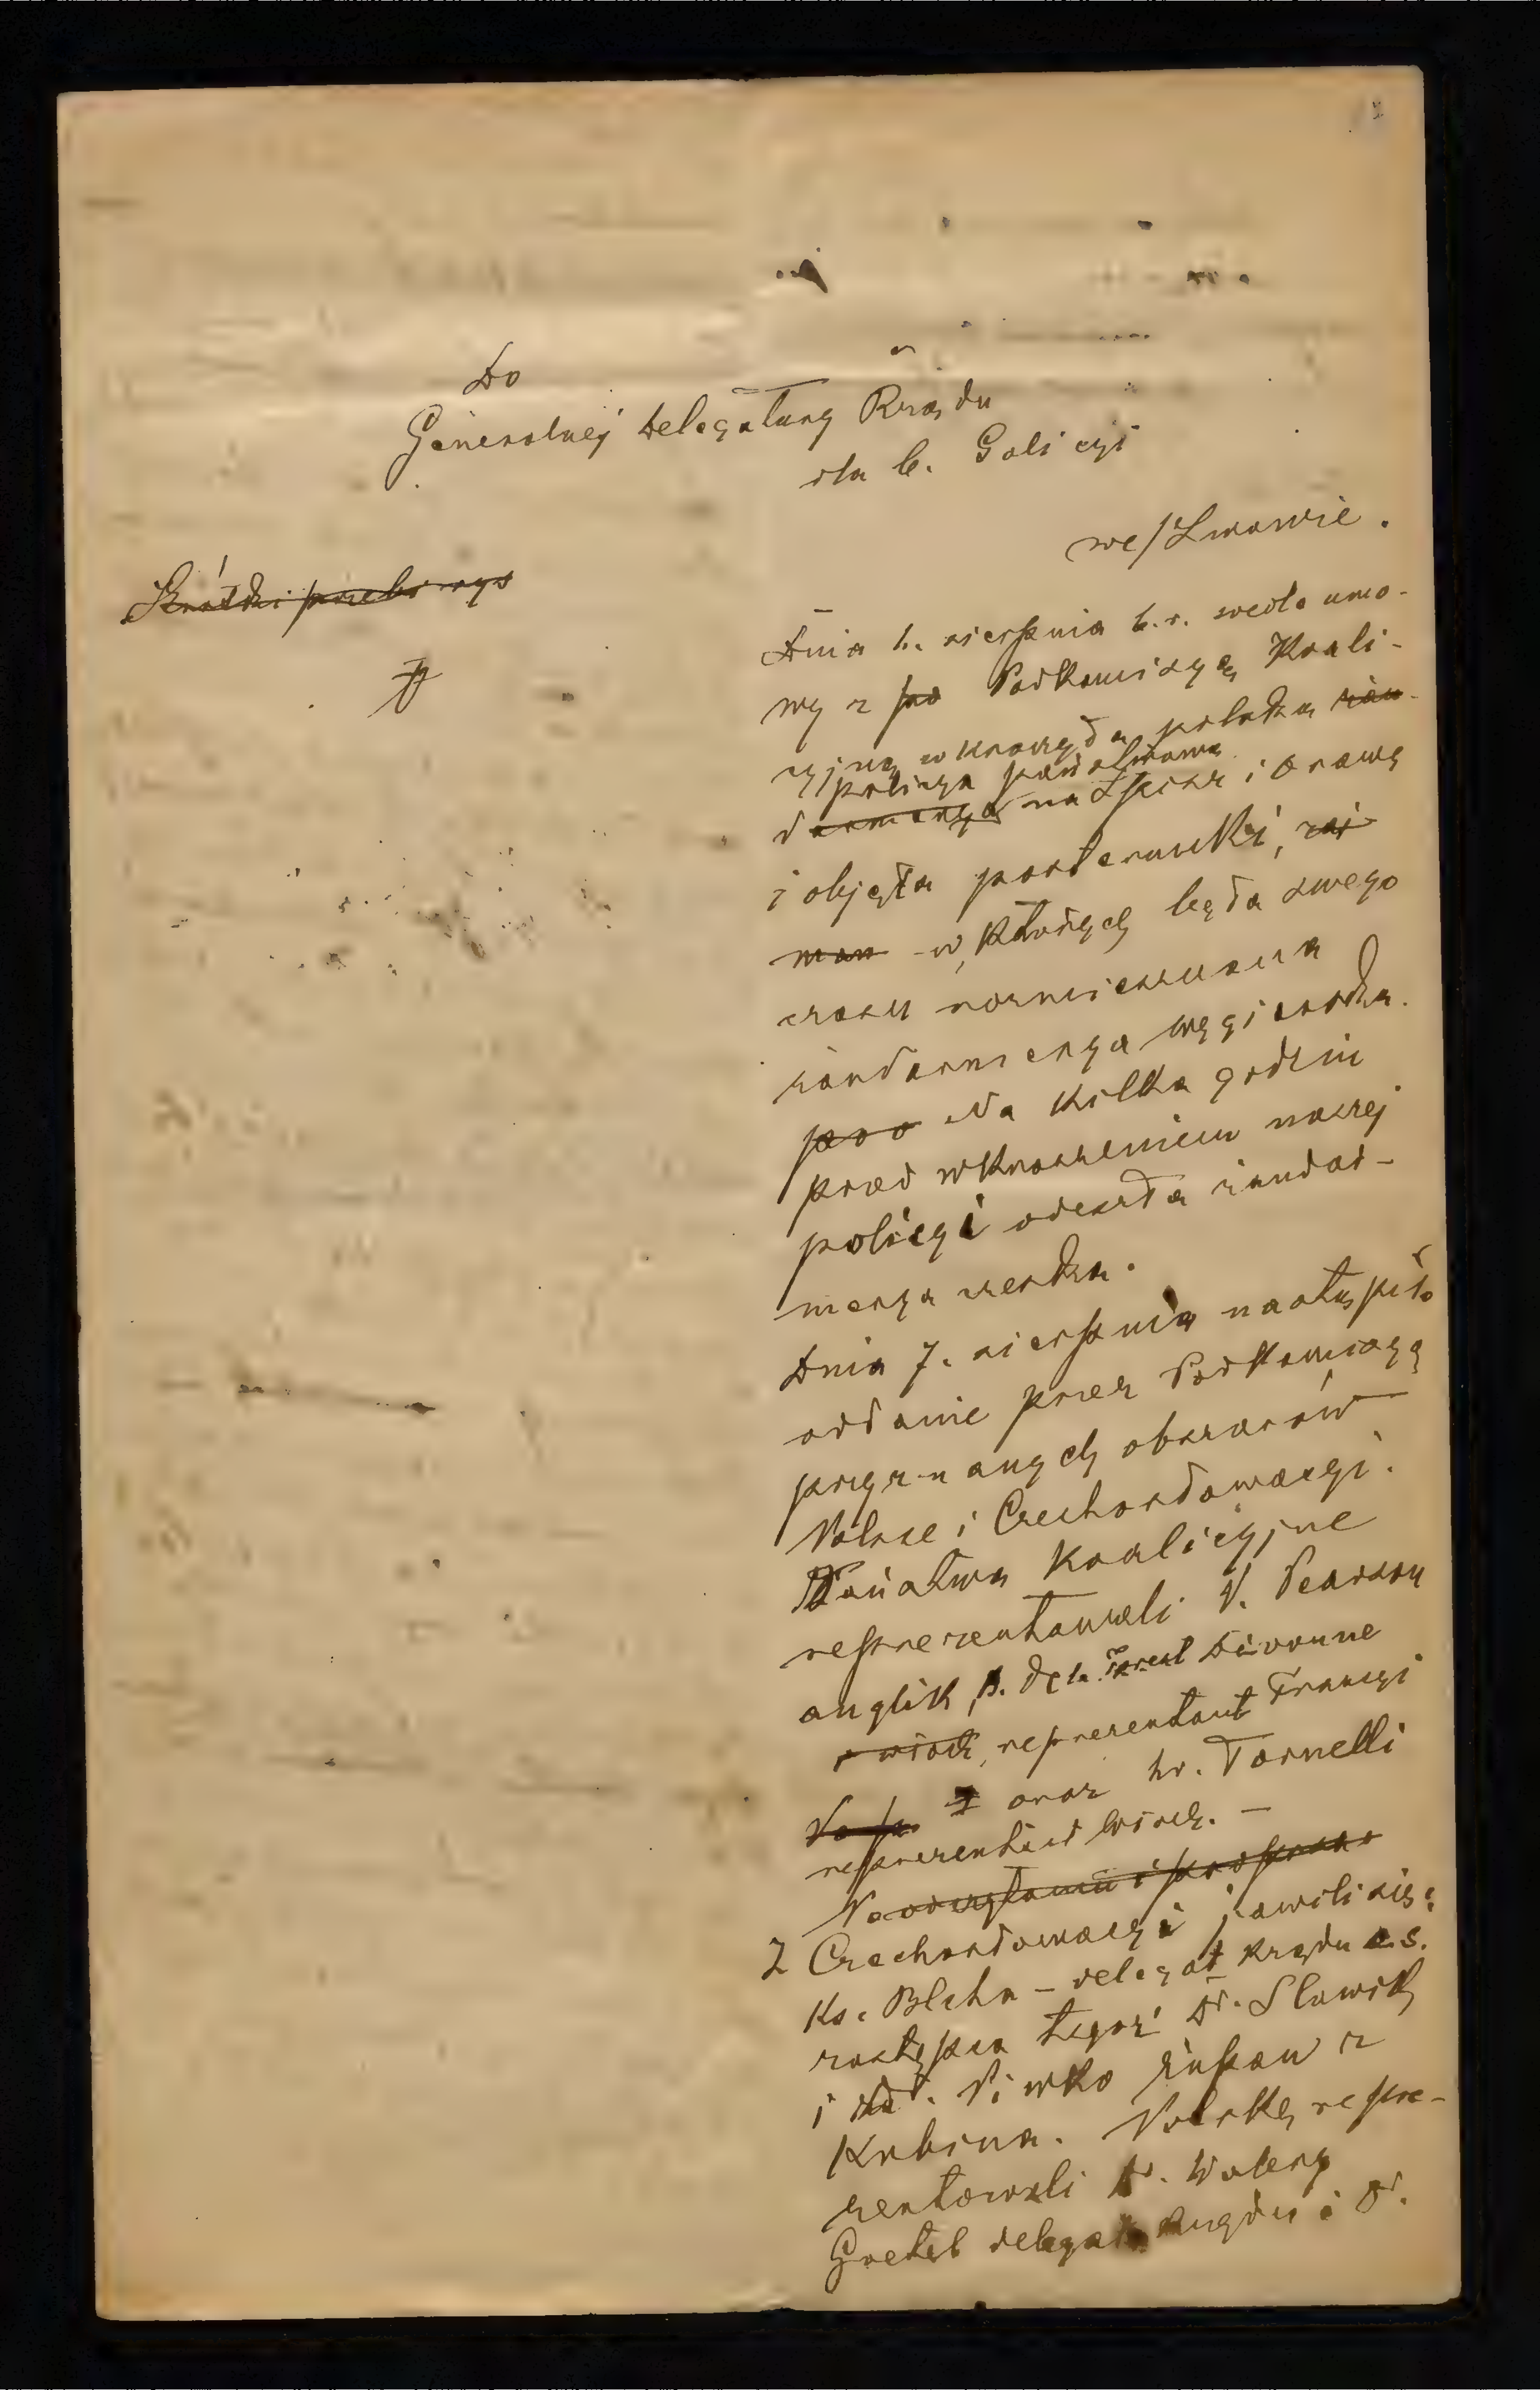 Do
Generalnej Delegatury Rządu
dla b. Galicyi
we/Lwowie.
Krótki przebi
Dnia 6. sierpnia b.r. wedle umo-
wy z Podkomisyą Koali-
cyjną wkroczyła polska żan
policya państwowa
darmerya na Spisz i Orawę
i objęła posterunki,
w których była swego
czasu rozmieszczona
żandarmerya węgierska.
Na kilka godzin
przed wkroczeniem naszej
policyi odeszła żandar-
merya czeska.
Dnia 7. sierpnia nastąpiło
oddanie przez Podkomisyę
przyznanych obszarów
Polsce i Czechosłowacyi.
Państwa koalicyjne
reprezentowali P. Pearson
anglik, p. de la Forest Divonne
reprezentant Francyi
oraz hr. Tornelli
reprezentant Włoch. —
Z Czechosłowacyi jawili się:
ks. Blaha – delegat rządu c.s.
zastępca tegoż Dr. Slawik
i Piwko żupan z
Kubina. Polskę repre-
zentowali Dr. Walery
Goetel delegat Rządu i Dr.